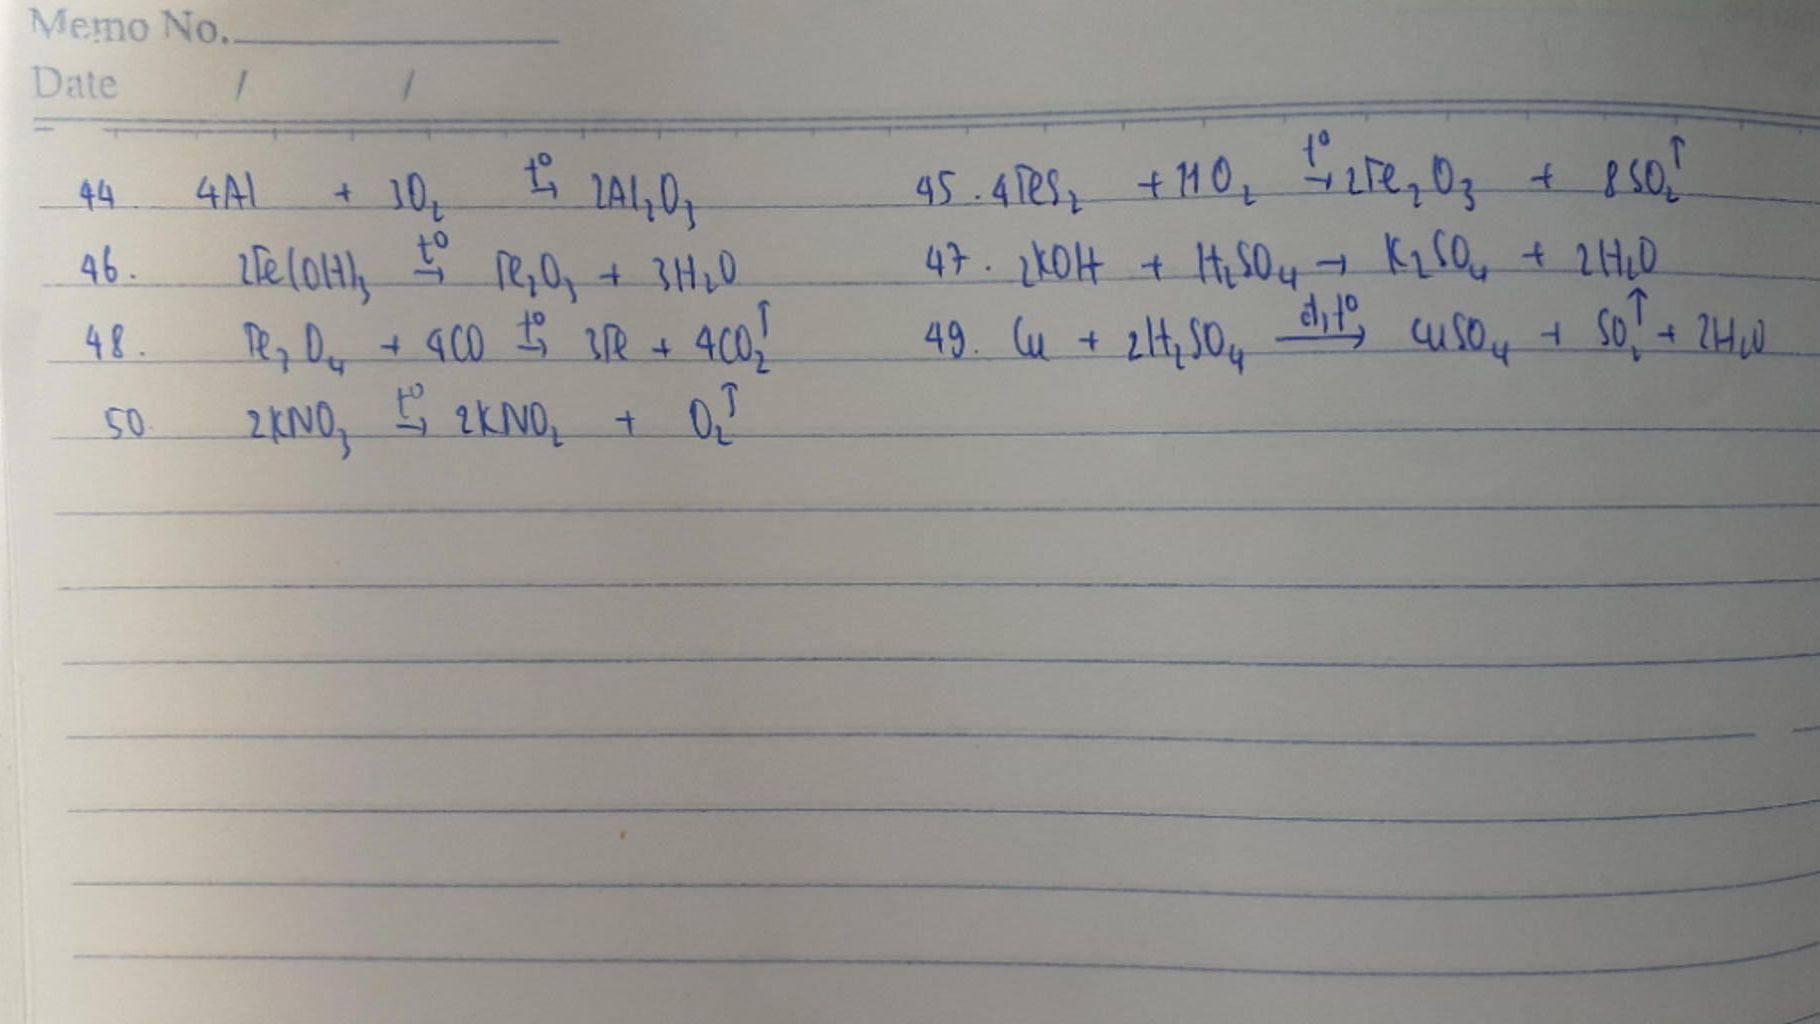 Memo No.
Date / /
44. 4Al + 3O₂ t° → 2Al₂O₃ 45. 4FeS₂ + 11O₂ t° → 2Fe₂O₃ + 8SO₂↑
46. 2Fe(OH)₃ t° → Fe₂O₃ + 3H₂O 47. 2KOH + H₂SO₄ → K₂SO₄ + 2H₂O
48. Fe₃O₄ + 4CO t° → 3Fe + 4CO₂↑ 49. Cu + 2H₂SO₄ đ,t° → CuSO₄ + SO₂↑ + 2H₂O
50. 2KNO₃ t° → 2KNO₂ + O₂↑